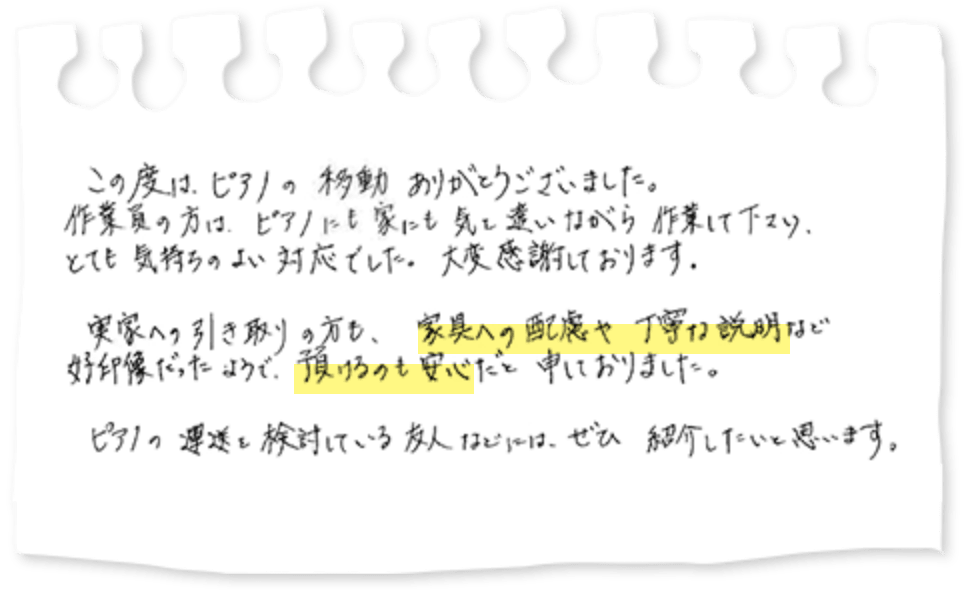 この度は、ピアノの移動ありがとうございました。
作業員の方は、ピアノにも家にも気を遣いながら作業して下さり、
とても気持ちのよい対応でした。大変感謝しております。
実家への引き取りの方も、家具への配慮や丁寧な説明など
好印象だったようで、預けるのも安心だと申しておりました。
ピアノの運送を検討している友人などには、ぜひ紹介したいと思います。